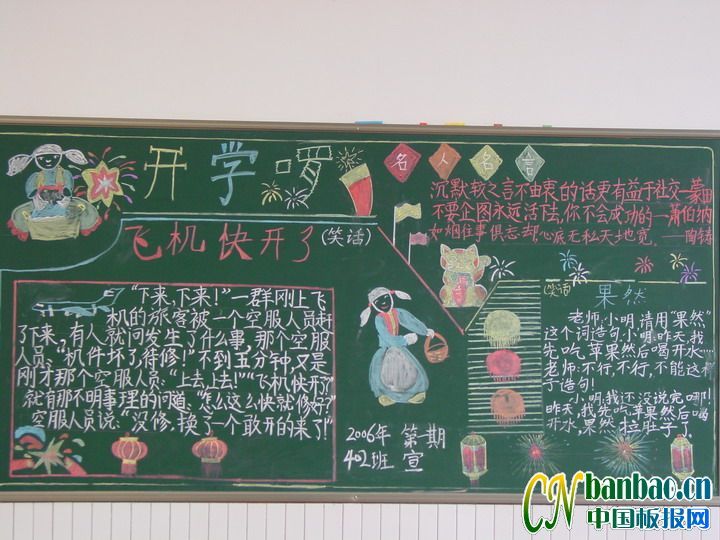 开学
飞机快开了(笑话)
"下来,下来!"一群刚上飞
机的旅客被一个空服人员赶
了下来,有人就问发生了什么事,那个空服
人员:"机件坏了待修!"不到五分钟,又是
刚才那个空服人员:"上去,上去!""飞机快开了"
就有那不明事理的问道:"怎么这么快就修好?"
空服人员说:"没修,换了一个敢开的来了!"
2006年 第 期
402班 宣
名人名言
沉默较之言不由衷的话更有益于社交—蒙田
不要企图永远活下去,你不会成功的—萧伯纳
如烟往事俱忘却,心底无私天地宽。——陶铸
(笑话)
果然
老师:小明,请用"果然"
这个词造句。小明:昨天,我
先吃苹果,然后喝开水…
老师:不行,不行,不能这样
子造句!
小明:我还没说完哪!
昨天,我先吃苹果,然后喝
开水,果然拉肚子了。
CNbanbao.cn
中国板报网